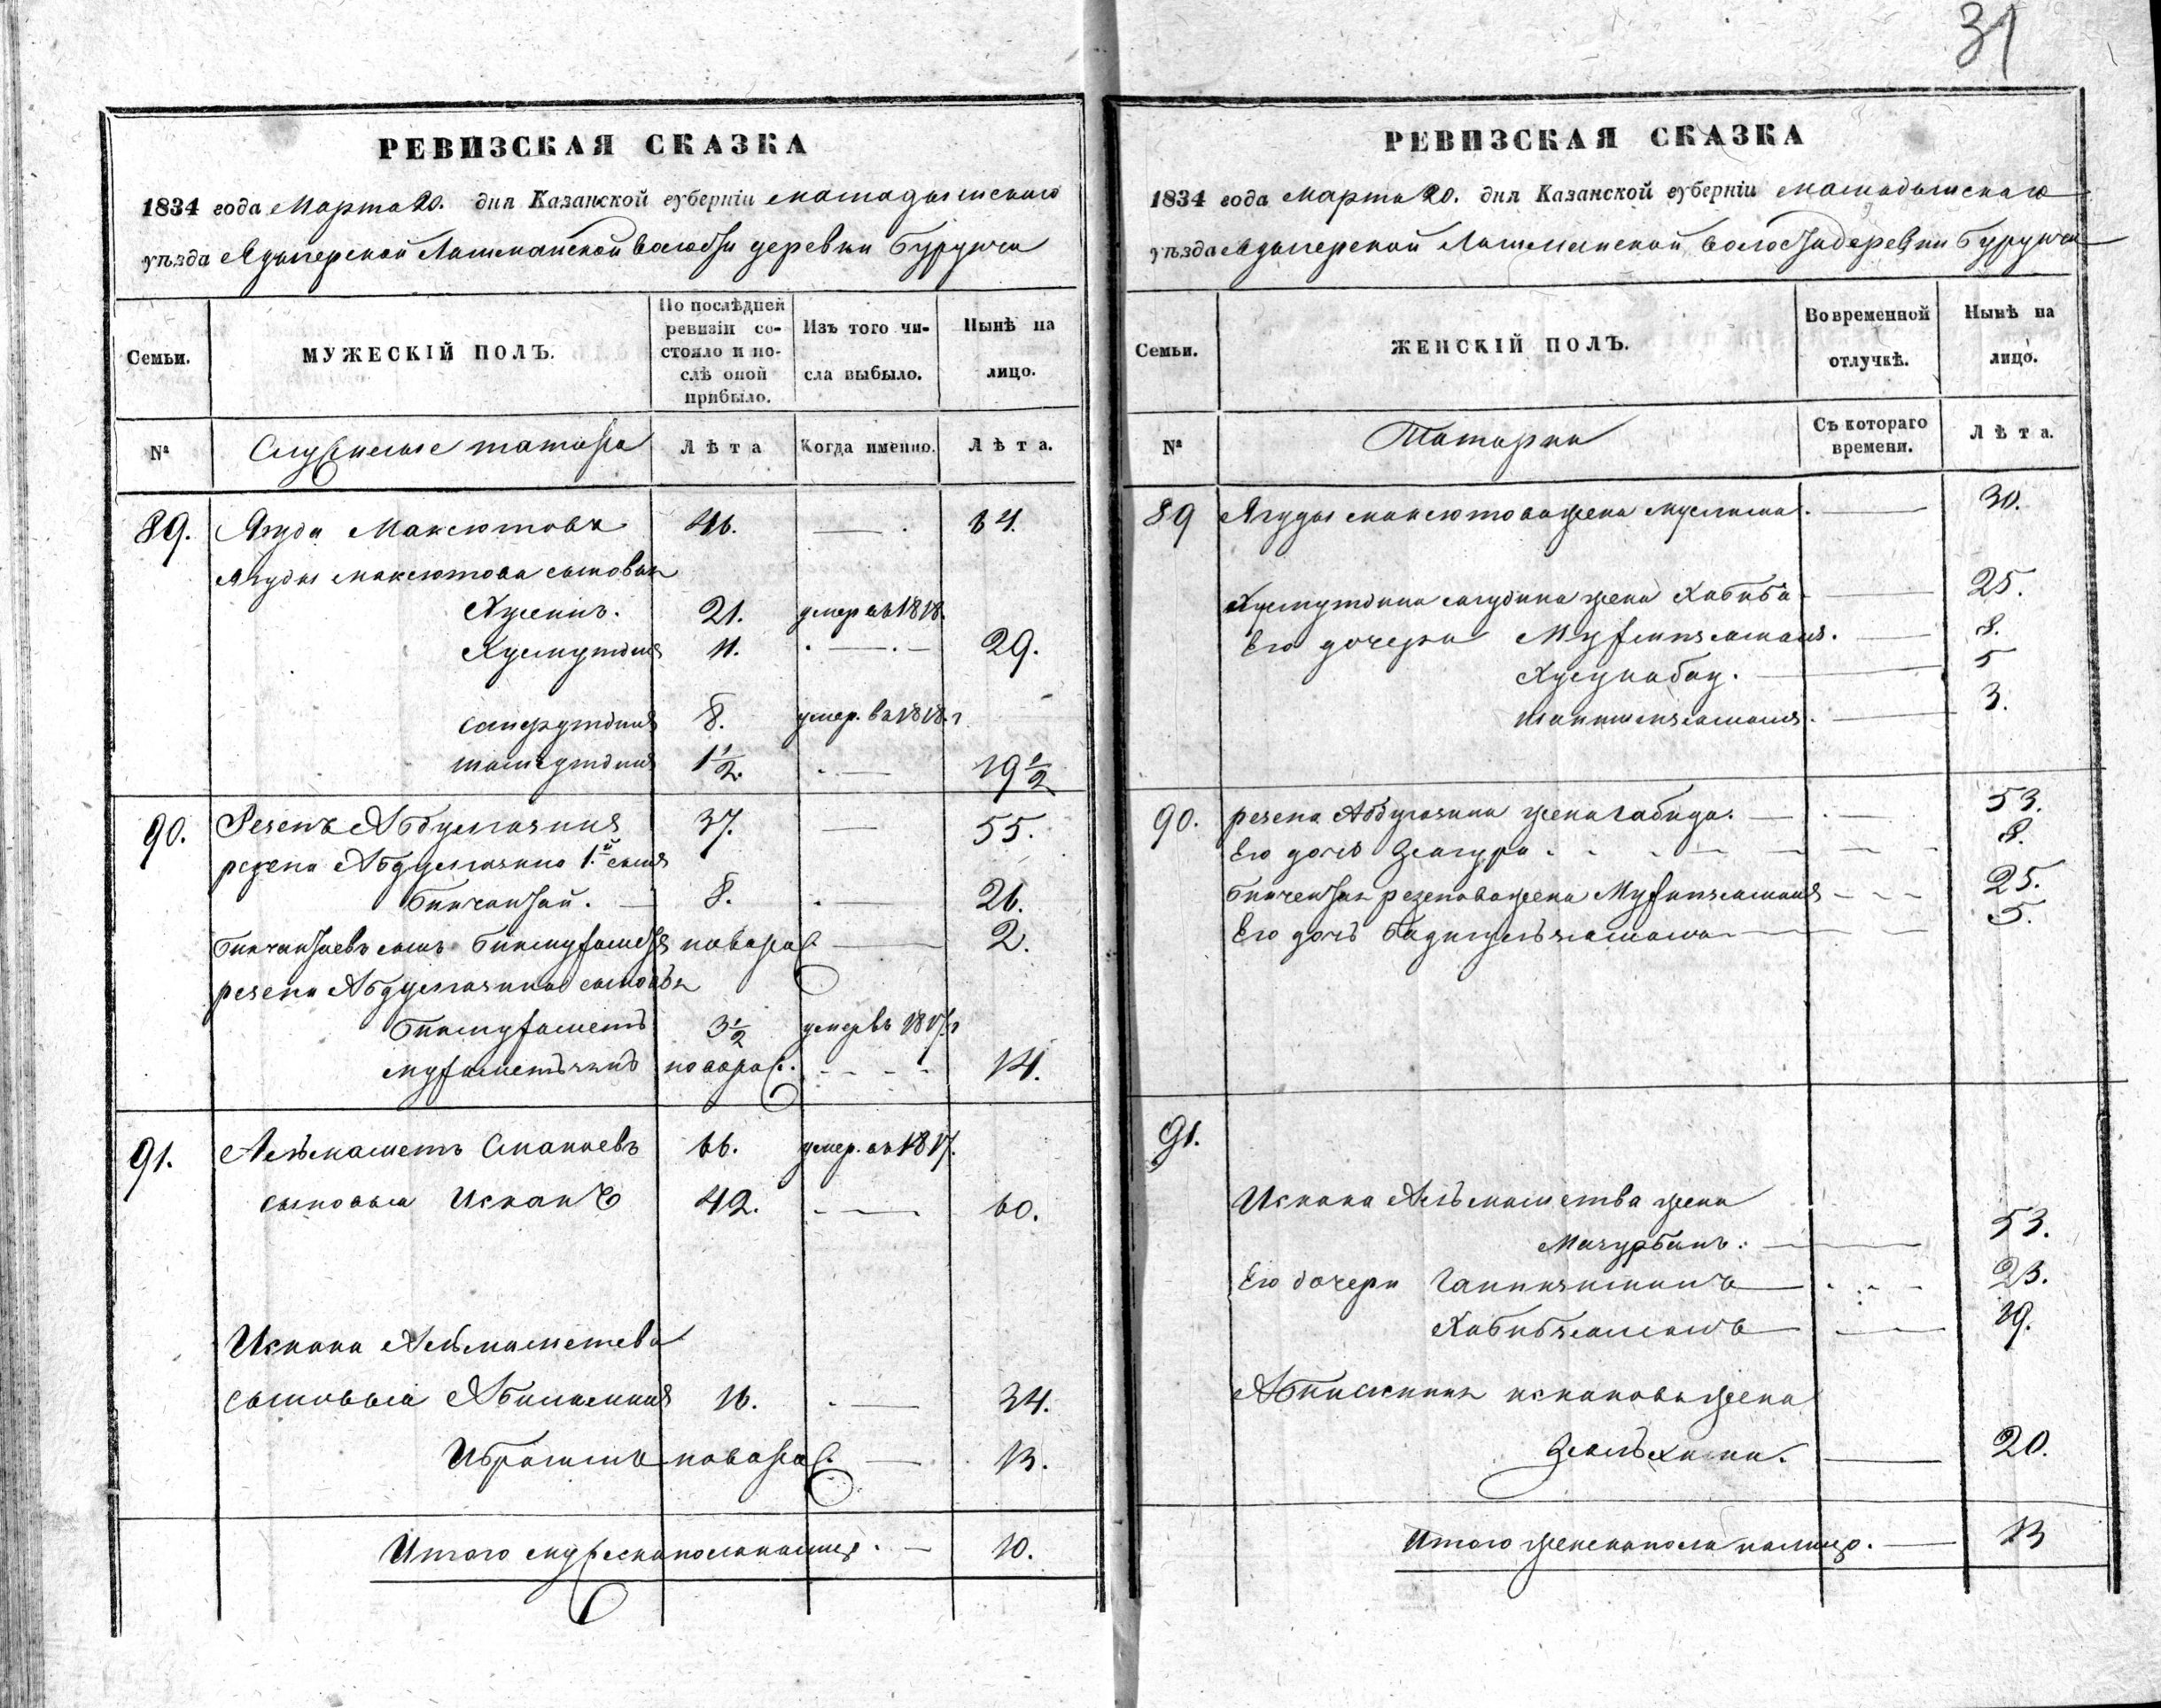 31
РЕВИЗСКАЯ СКАЗКА
1834 года Марта 20. дня Казанской губерніи Мамадышскаго
уѣзда Лашманской волости деревни Бурунчи
Семьи.
МУЖЕСКІЙ ПОЛЪ.
По послѣдней ревизіи со-стояло и по-слѣ оной прибыло.
Изъ того чи-сла выбыло.
Нынѣ на лицо.
№
Служилые татара
Лѣта
Когда именно.
Лѣта.
89. Ягуда Максютовъ 46. — 64.
Ягуды Максютова сыновья
Хусеинъ. 21. умер въ 1818.
Хусмутдинъ 11. — 29.
Сайфутдинъ 8. умер. въ 1818. г
1½. — 19½
90. Резепъ Абдулгазинъ 37. — 55.
резепа Абдулгазина 1.й сынъ
Бикчантай. 8. — 26.
Бикчантаевъ сынъ Бикмухаметъ новорож. — 2.
резепа Абдулгазина сыновья
Бикмухаметъ 3½ умеръ въ 1817. г
мухаметъ новорож. — 14.
91. Альмаметъ Смакаевъ 66. умер. въ 1817.
сыновья Искакъ 42. — 60.
Искака Альмаметева
сыновья 16. — 34.
Ибрагимъ новорож. — 13.
Итого мужеска пола налицо. — 10.
РЕВИЗСКАЯ СКАЗКА
1834 года Марта 20. дня Казанской губерніи Мамадышскаго
уѣзда Лашманской волости деревни Бурунчи
Семьи.
ЖЕНСКІЙ ПОЛЪ.
Во временной отлучкѣ.
Нынѣ на лицо.
№
Татарки
Съ котораго времени.
Лѣта.
89 Ягуды Максютова жена Муслима. — 30.
Хусмутдина Ягудина жена Хабиба — 25.
Его дочери — 8.
— 5
— 3.
90. резепа Абдулгазина жена Габида. — 53.
Его дочь Зюгура — 8.
Бикчантая резепова жена — 25.
Его дочь — 5.
91.
Искака Альмаметва жена
— 53.
Его дочери — 23.
Хабибзямалъ — 19.
Искакова жена
— 20.
Итого женска пола налицо. — 13